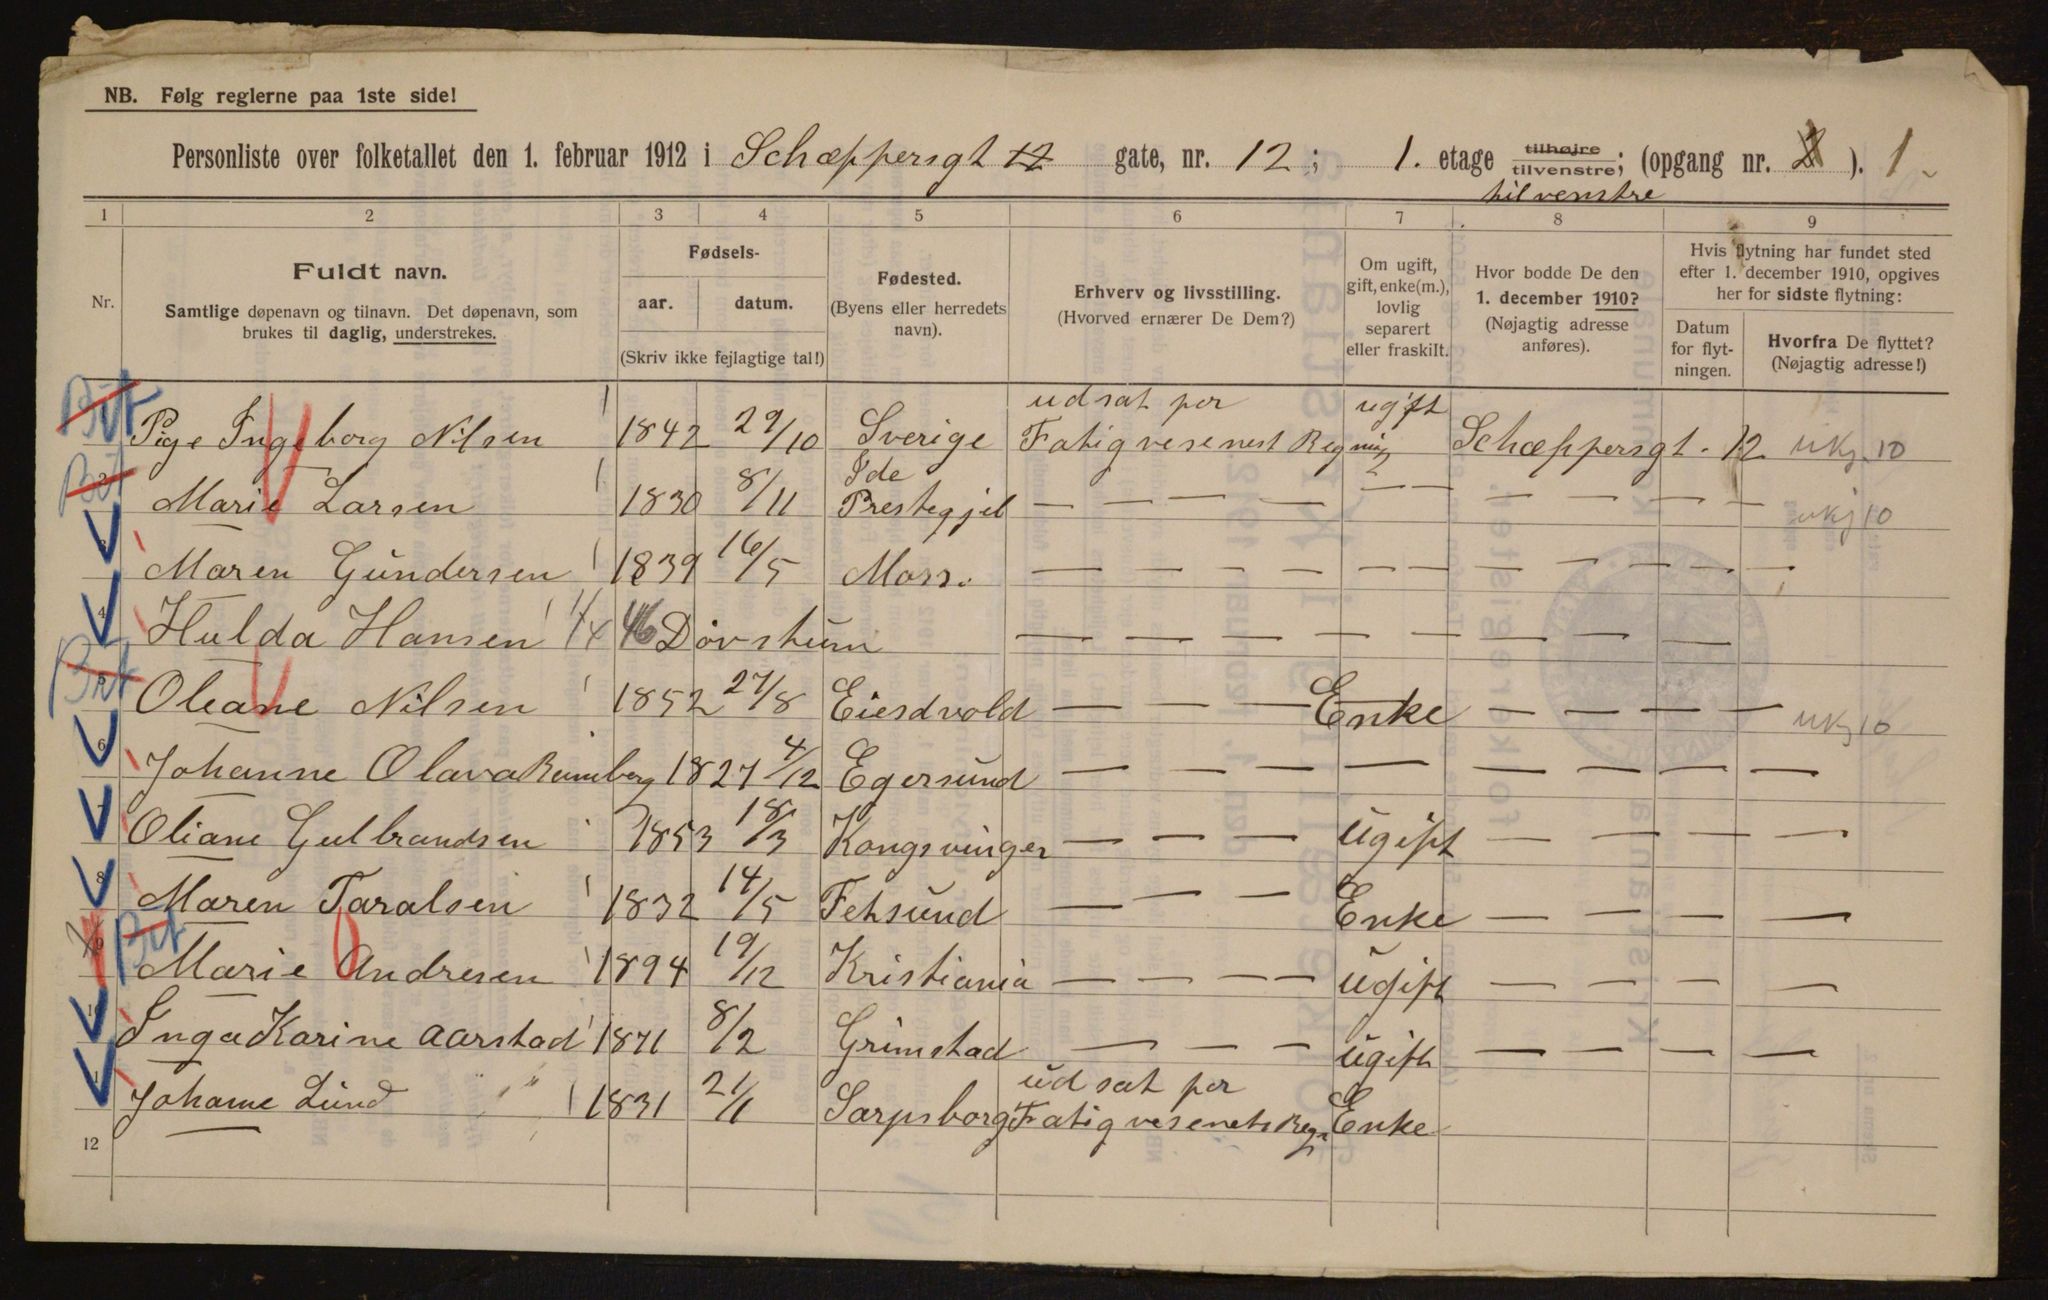 NB. Følg reglerne paa 1ste side!
Personliste over folketallet den 1. februar 1912 i Schæppersgt 12 gate, nr. 12; 1. etage tilhøjre tilvenstre; (opgang nr. 2). 1
til venstre
1 2 3 4 5 6 7 8 9
Nr.
Fuldt navn.
Samtlige døpenavn og tilnavn. Det døpenavn, som
brukes til daglig, understrekes.
Fødsels-
aar. datum.
(Skriv ikke fejlagtige tal!)
Fødested.
(Byens eller herredets
navn).
Erhverv og livsstilling.
(Hvorved ernærer De Dem?)
Om ugift,
gift, enke(m.),
lovlig
separert
eller fraskilt.
Hvor bodde De den
1. december 1910?
(Nøjagtig adresse
anføres).
Hvis flytning har fundet sted
efter 1. december 1910, opgives
her for sidste flytning:
Datum
for flyt-
ningen.
Hvorfra De flyttet?
(Nøjagtig adresse!)
udsat per ugift
Pige Ingeborg Nilsen 1842 29/10 Sverige Fatigvesenest Regning Schæppersgt. 12 ukj 10
Ide
2 Marie Larsen 1830 8/11 Prestegjel — — — — — — — — — — ukj 10
3 Maren Gundersen 1839 16/5 Moss. — — — — — — — — — — —
4 Hulda Hansen 1/4 46 Døvstum — — — — — — — — — —
5 Oleane Nilsen 1852 27/8 Eiesdvold — — — Enke — — — — ukj 10
6 Johanne Olava Rumberg 1827 4/12 Egersund — — — — — — — —
7 Oliane Gulbrandsen 1853 18/3 Kongsvinger — — — ugift — — — —
8 Maren Taralsen 1832 14/5 Fetsund — — — Enke — — — —
9 Marie Andresen 1894 19/12 Kristiania — — — — ugift — — — —
Inga Karine Aarstad 1871 8/2 Grimstad — — — ugift — — — —
udsat per
Johanne Lund " " 1831 21/1 Sarpsborg Fatigvesenets Regn Enke
12